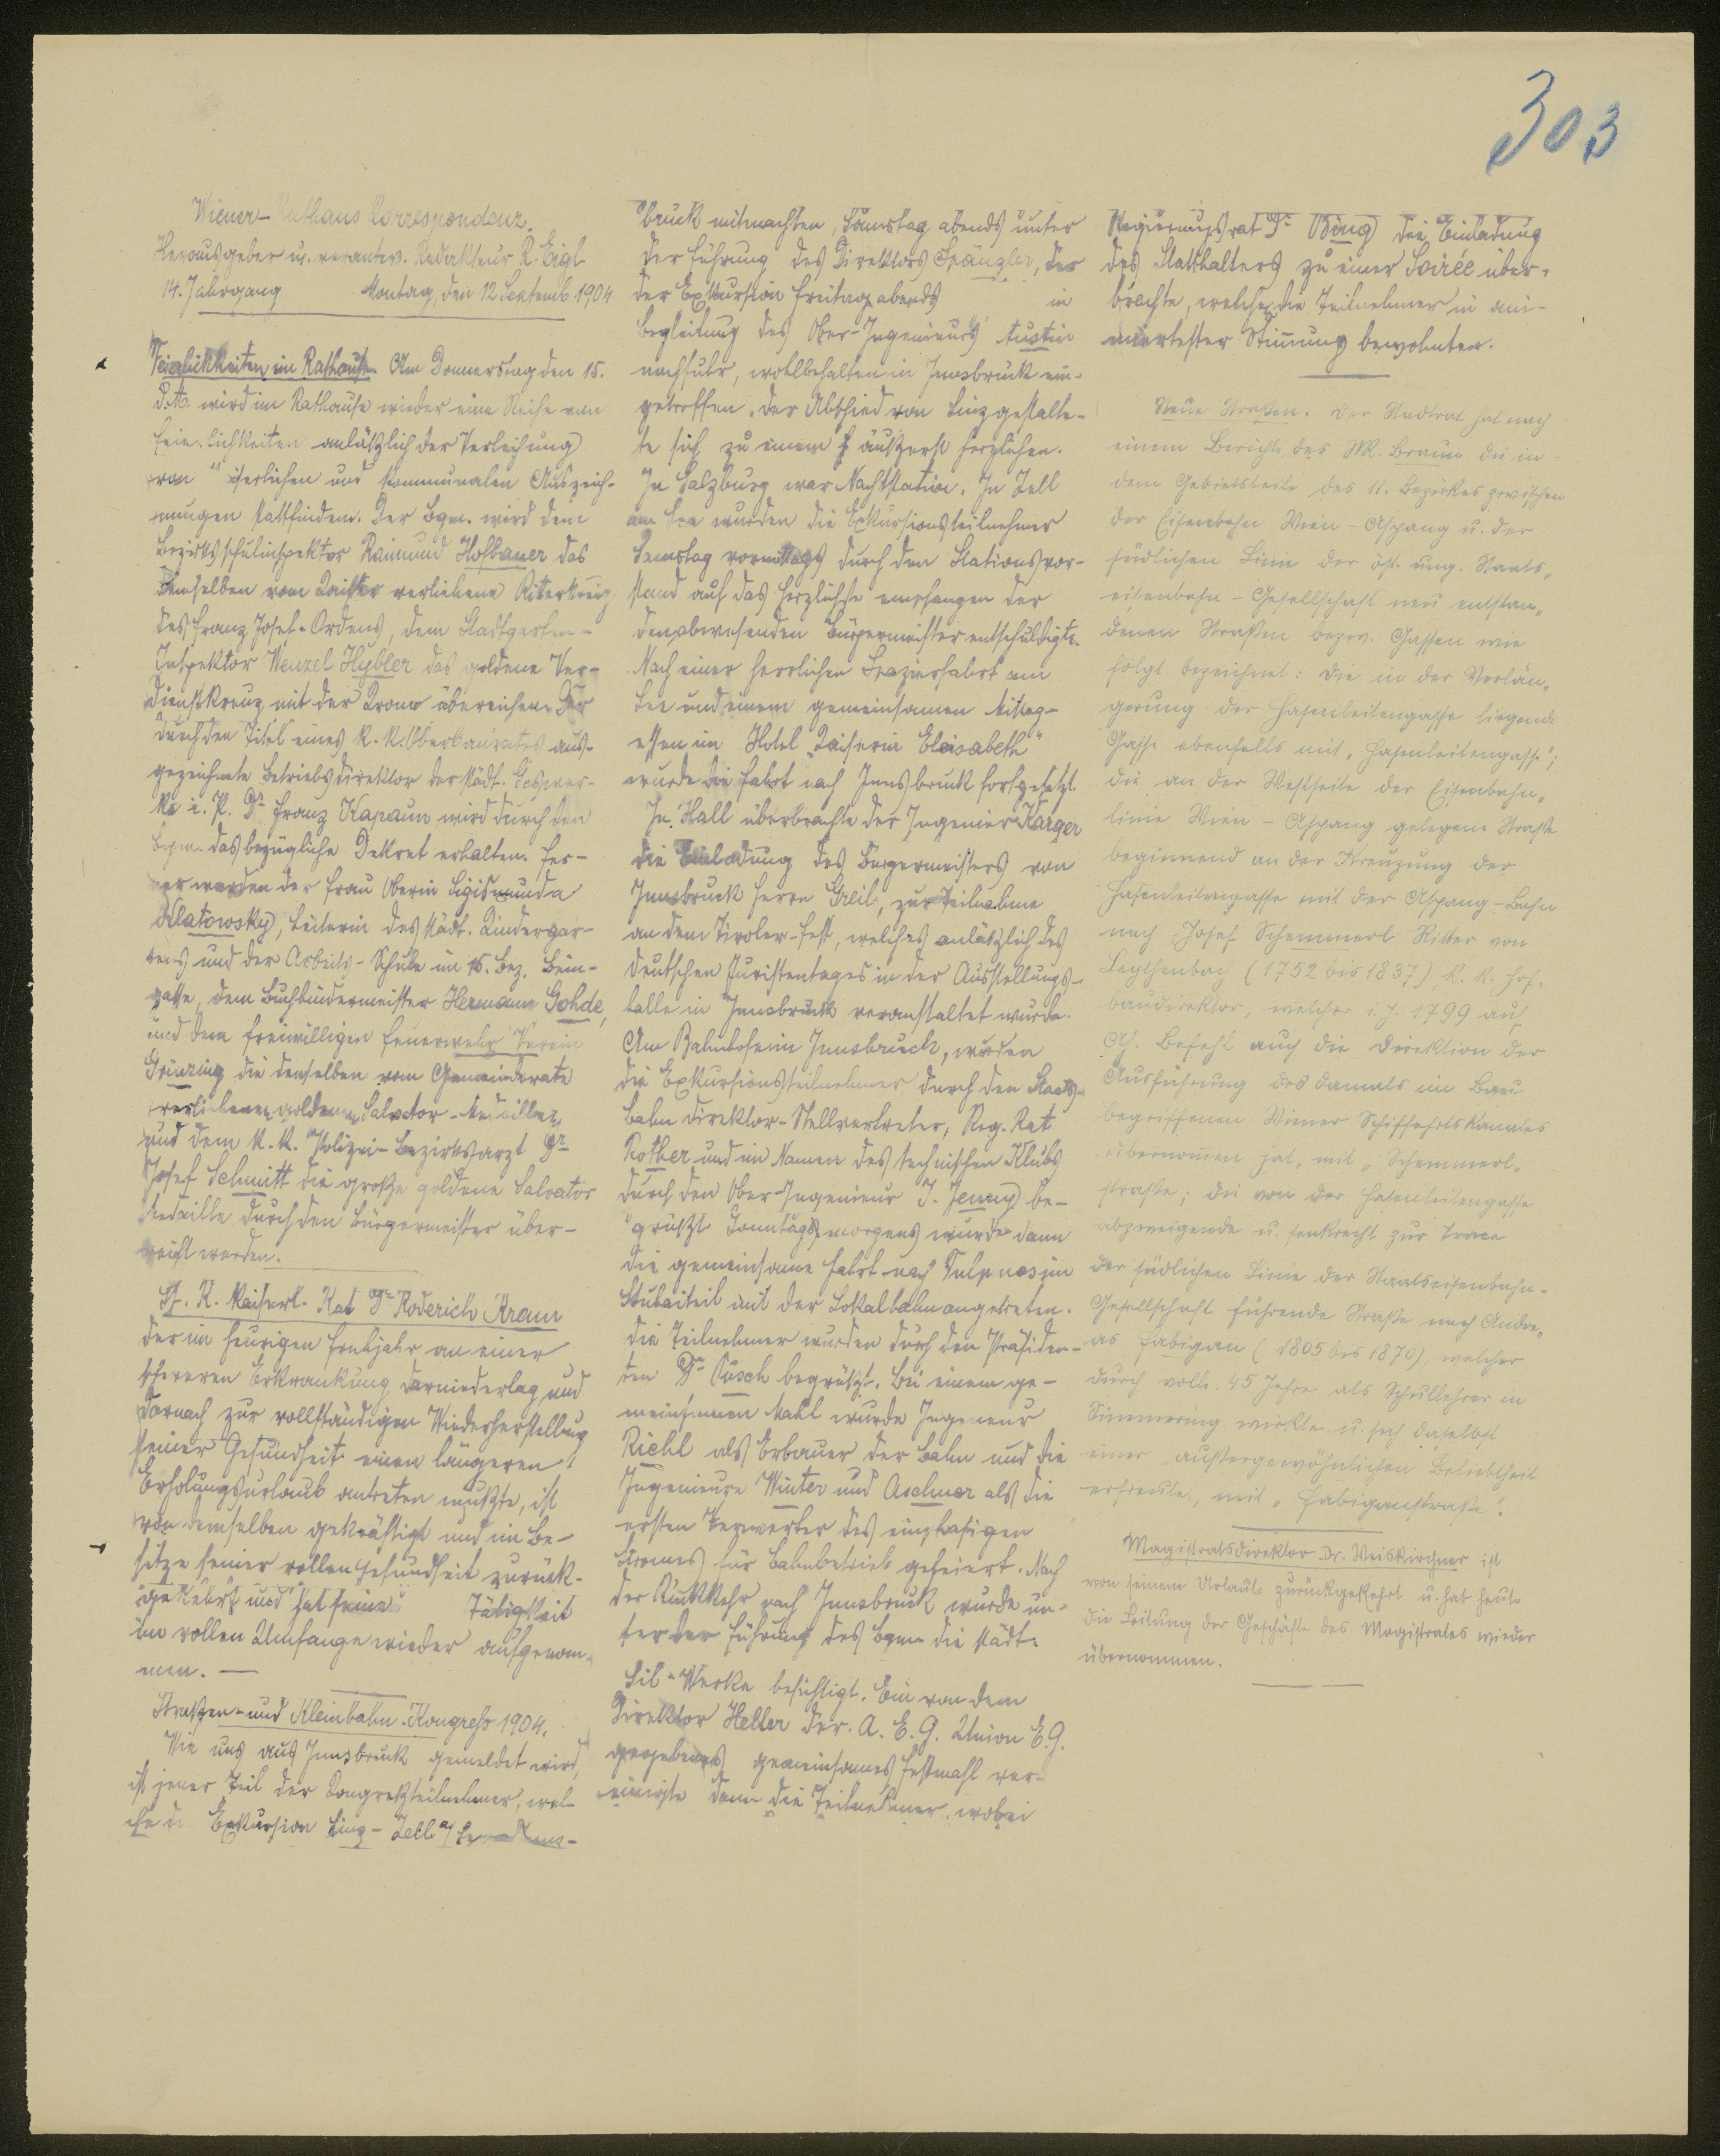 303
Wiener Rathaus Korrespondenz.
Herausgeber u. verantw. Redakteur R. Eigl
14. Jahrgang Montag, den 12 Septemb 1904
Feierlichkeiten im Rathause. Am Donnerstag den 15.
d. M. wird im Rathause wieder eine Reihe von
Feierlichkeiten anläßlich der Verleihung
von kaiserlichen und kommunalen Auszeich-
nungen stattfinden. Der Bgm. wird dem
Bezirksschulinspektor Raimund Hofbauer das
demselben vom Kaiser verliehene Ritterkreuz
des Franz Josef-Ordens, dem Stadtgarten-
Inspektor Wenzel Hybler das goldene Ver-
dienstkreuz mit der Krone übereichen. Der
durch den Titel eines k. k. Oberbaurates aus-
gezeichnete Betriebsdirektor der städt. Gaswer-
ke i. P. Dr. Franz Kapaun wird durch den
Bgm. das bezügliche Dekret erhalten. Fer-
ner werden der Frau Oberin Sigismunda
Klatowsky, Leiterin des städt. Kindergar-
tens und der Arbeits-Schule im 15. Bez.
gasse, dem Buchbindermeister Hermann Gohde,
und dem freiwilligen Feuerwehr Verein
Grinzing die denselben vom Gemeinderate
verliehenen goldenen Salvator-Medaillen,
und dem k. k. Polizei-Bezirksarzt Dr.
Josef Schmitt die große goldene Salvator
Medaille durch den Bürgermeister über-
reicht werden.
St. R. kaiserl. Rat Dr. Roderich Krenn
der im heurigen Frühjahr an einer
schweren Erkrankung darniederlag und
darnach zur vollständigen Wiederherstellung
seiner Gesundheit einen längeren
Erholungsurlaub antreten mußte, ist
von demselben gekräftigt und im Be-
sitze seiner vollen Gesundheit zurück-
gekehrt und hat seine Tätigkeit
im vollen Umfange wieder aufgenom-
men.
Straßen- und Kleinbahn-Kongreß 1904.
Wie uns aus Innsbruck gemeldet wird,
ist jener Teil der Kongreßteilnehmer, wel-
che die Exkursion Linz-Zell a/See-Inns-
bruck mitmachten, Samstag abends unter
der Führung des Direktors Spängler, der
der Exkursion Freitag abends in
Begleitung des Ober-Ingenieurs Austin
nachfuhr, wohlbehalten in Innsbruck ein-
getroffen. Der Abschied von Linz gestalte-
te sich zu einem äußerst herzlichen.
In Salzburg war Nachtstation. In Zell
am See wurden die Exkursionsteilnehmer
Samstag vormittags durch den Stationsvor-
stand auf das herzlichste empfangen der
den abwesenden Bürgermeister entschuldigte.
Nach einer herrlichen Spazierfahrt am
See und einem gemeinsamen Mittag-
essen im Hotel „Kaiserin Elisabeth"
wurde die Fahrt nach Innsbruck fortgesetzt.
In Hall überbrachte der Ingenieur Karger
die Einladung des Bürgermeisters von
Innsbruck Herrn Greil, zur Teilnahme
an dem Tiroler-Fest, welches anläßlich des
deutschen Juristentages in der Ausstellungs-
halle in Innsbruck veranstaltet wurde.
Am Bahnhofe in Innsbruck, wurden
die Exkursionsteilnehmer durch den Staats-
bahn direktor-Stellvertreter, Reg. Rat
Rother und im Namen des technischen Klubs
durch den Ober-Ingenieur J. Jenny be-
grüßt. Sonntags morgens wurde dann
die gemeinsame Fahrt nach Fulpmes im
Stubaiteil mit der Lokalbahn angetreten.
Die Teilnehmer wurden durch den Präsiden-
ten Dr. begrüßt. Bei einem ge-
meinsamen Mahl wurde Ingenieur
Riehl als Erbauer der Bahn und die
Ingenieure Winter und als die
ersten Verwerter des einphasigen
Stromes für Bahnbetrieb gefeiert. Nach
der Rückkehr nach Innsbruck wurde un-
ter der Führung des Bgm. die städt.
Sil-Werke besichtigt. Ein von dem
Direktor Heller der A. E. G. Union E.G.
gegebenes gemeinsames Festmahl ver-
einigte dann die Teilnehmer, wobei
Regierungsrat Dr. die Einladung
des Statthalters zu einer Soirée über-
brachte, welcher die Teilnehmer in ani-
miertester Stimmung bewohnten.
Neue Straßen. Der Stadtrat hat nach
einem Berichte des StR. Braun die in
dem Gebietsteile des 11. Bezirkes zwischen
der Eisenbahn Wien-Aspang u. der
südlichen Linie der öst. ung. Staats-
eisenbahn-Gesellschaft neu entstan-
denen Straßen bezw. Gassen wie
folgt bezeichnet: die in der Verlän-
gerung der Hasenleitengasse liegende
Gasse ebenfalls mit „Hasenleitengasse";
die an der Westseite der Eisenbahn-
linie Wien-Aspang gelegene Straße
beginnend an der Kreuzung der
Hasenleitengasse mit der Aspang-Bahn
nach Josef Schemmerl Ritter von
Leythenbach (1752 bis 1837), k. k. Hof-
baudirektor, welcher i. J. 1799 auf
Ah. Befehl auch die Direktion der
Ausführung des damals im Bau
begriffenen Wiener Schiffahrtskanales
übernommen hat, mit „Schemmerl-
straße; die von der Hasenleitengasse
abzweigende u. senkrecht zur Trace
der südlichen Linie der Staatseisenbahn-
Gesellschaft führende Straße nach Andre-
as Fabigan (1805 bis 1870), welcher
durch volle 45 Jahre als Schullehrer in
Simmering wirkte u. sich daselbst
einer außergewöhnlichen Beliebtheit
erfreute, mit „Fabiganstraße".
Magistratsdirektor Dr. Weiskirchner ist
von seinem Urlaub zurückgekehrt u. hat heute
die Leitung der Geschäfte des Magistrates wieder
übernommen.